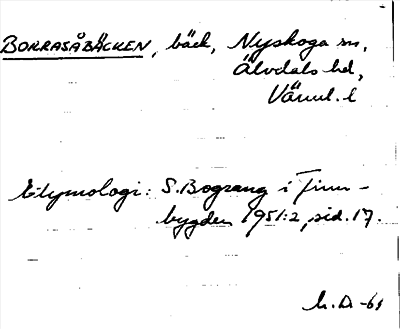 BORRASÅBÄCKEN, bäck, Nyskoga sn,
Älvdals hd,
Värml. l
Etymologi: S. Bograng i Finn-
bygden 1951:2, sid. 17.
D -61